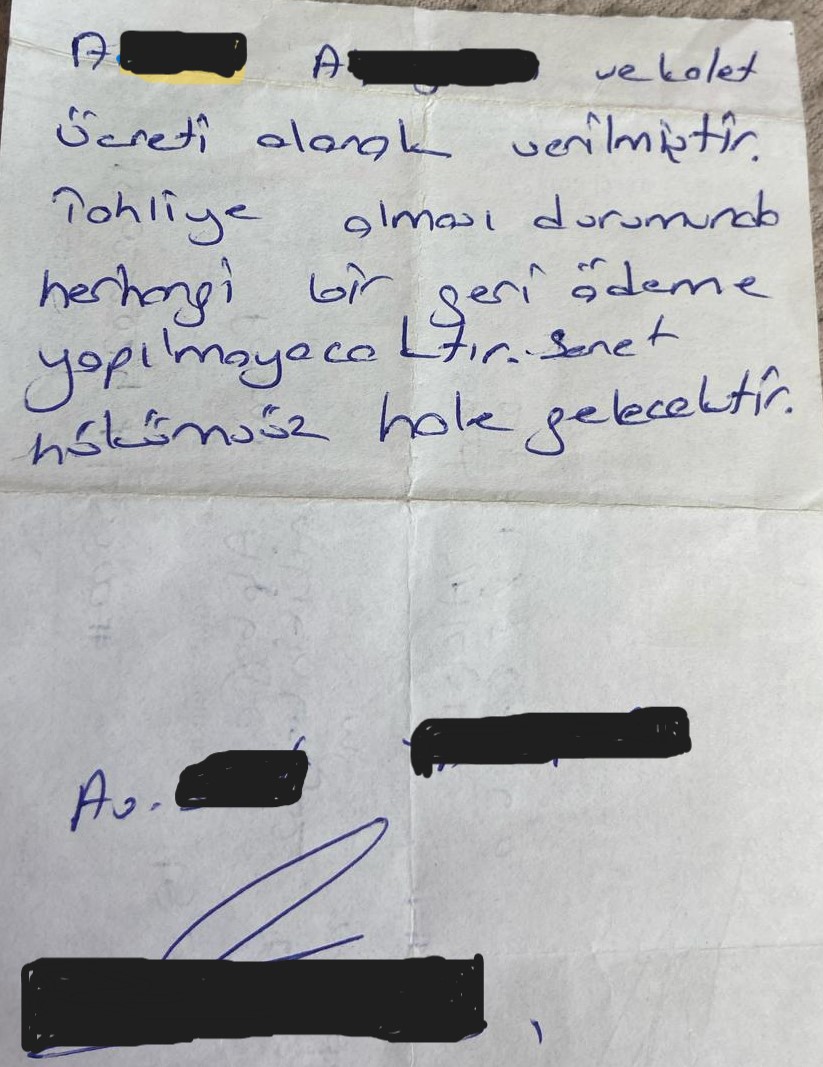 A A vekalet
ücreti olarak verilmiştir.
Tahliye olması durumunda
herhangi bir geri ödeme
yapılmayacaktır. Senet
hükümsüz hale gelecektir.
Av.